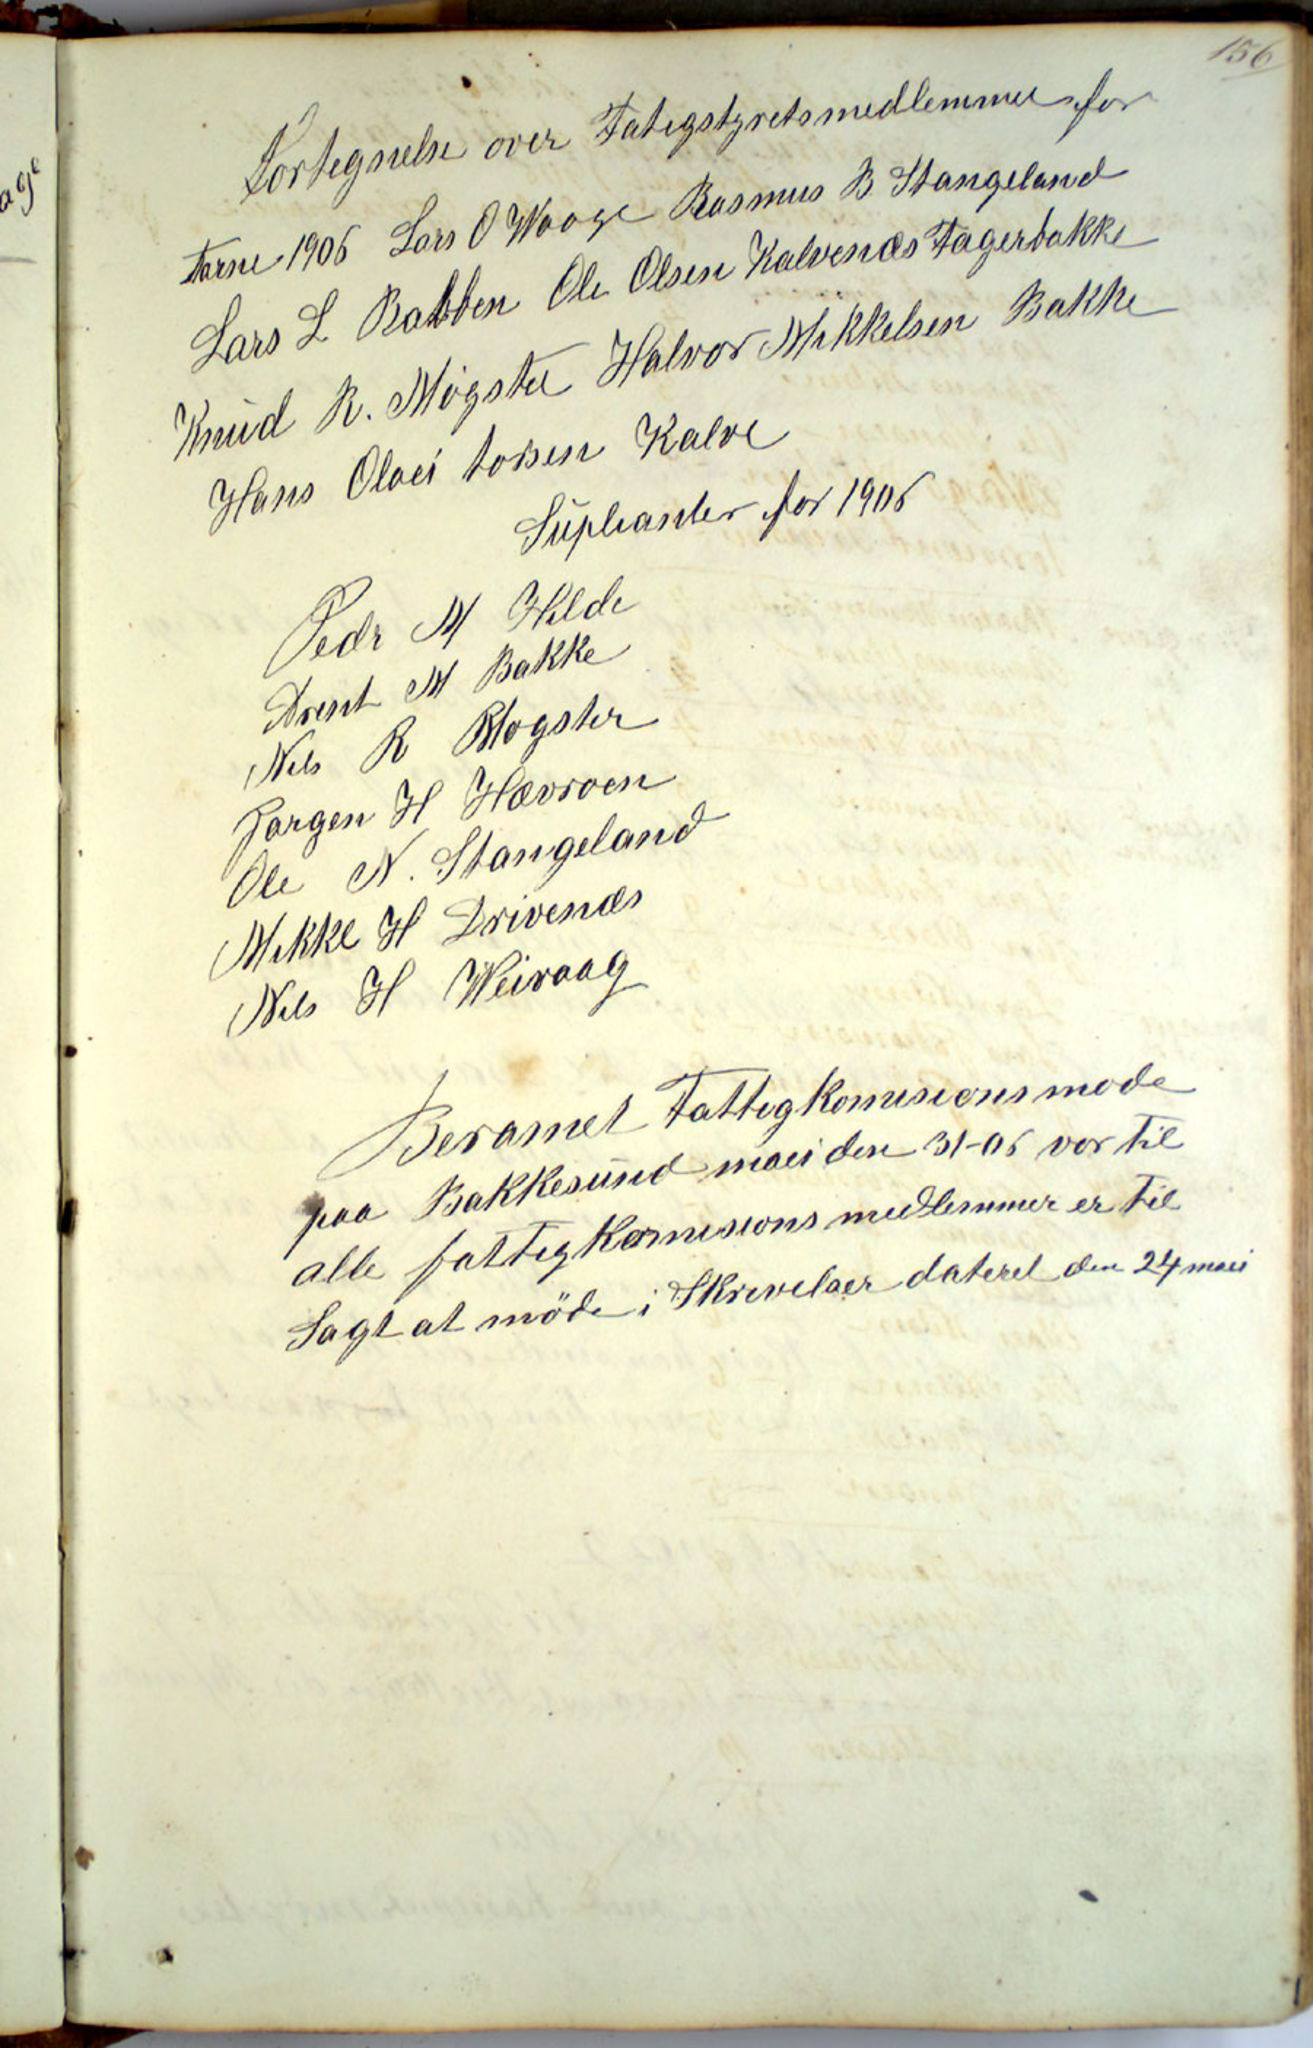 156
Fortegnelse over Fatigstyretsmedlemmer for
1906 Lars O Waage Rasmus B. Stangeland
Lars L Rabben Ole Olsen Kalvenæs Fagerbakke
Knud R. Møgster Halvor Mikkelsen Bakke
Hans Olai Kalve
Supleanter for 1906
Pedr M Hilde
Arent M Bakke
Nils R Møgster
Jørgen H Hævrøen
Ole N. Stangeland
Mikkl H Drivenæs
Nils H Weivaag
Beramet Fattigkomisionsmøde
paa Bakkesund maei den 31-06 vor til
alle fattigkomisions medlemmer er til
Sagt at møde i Skrivelser dateret den 24 maei
age